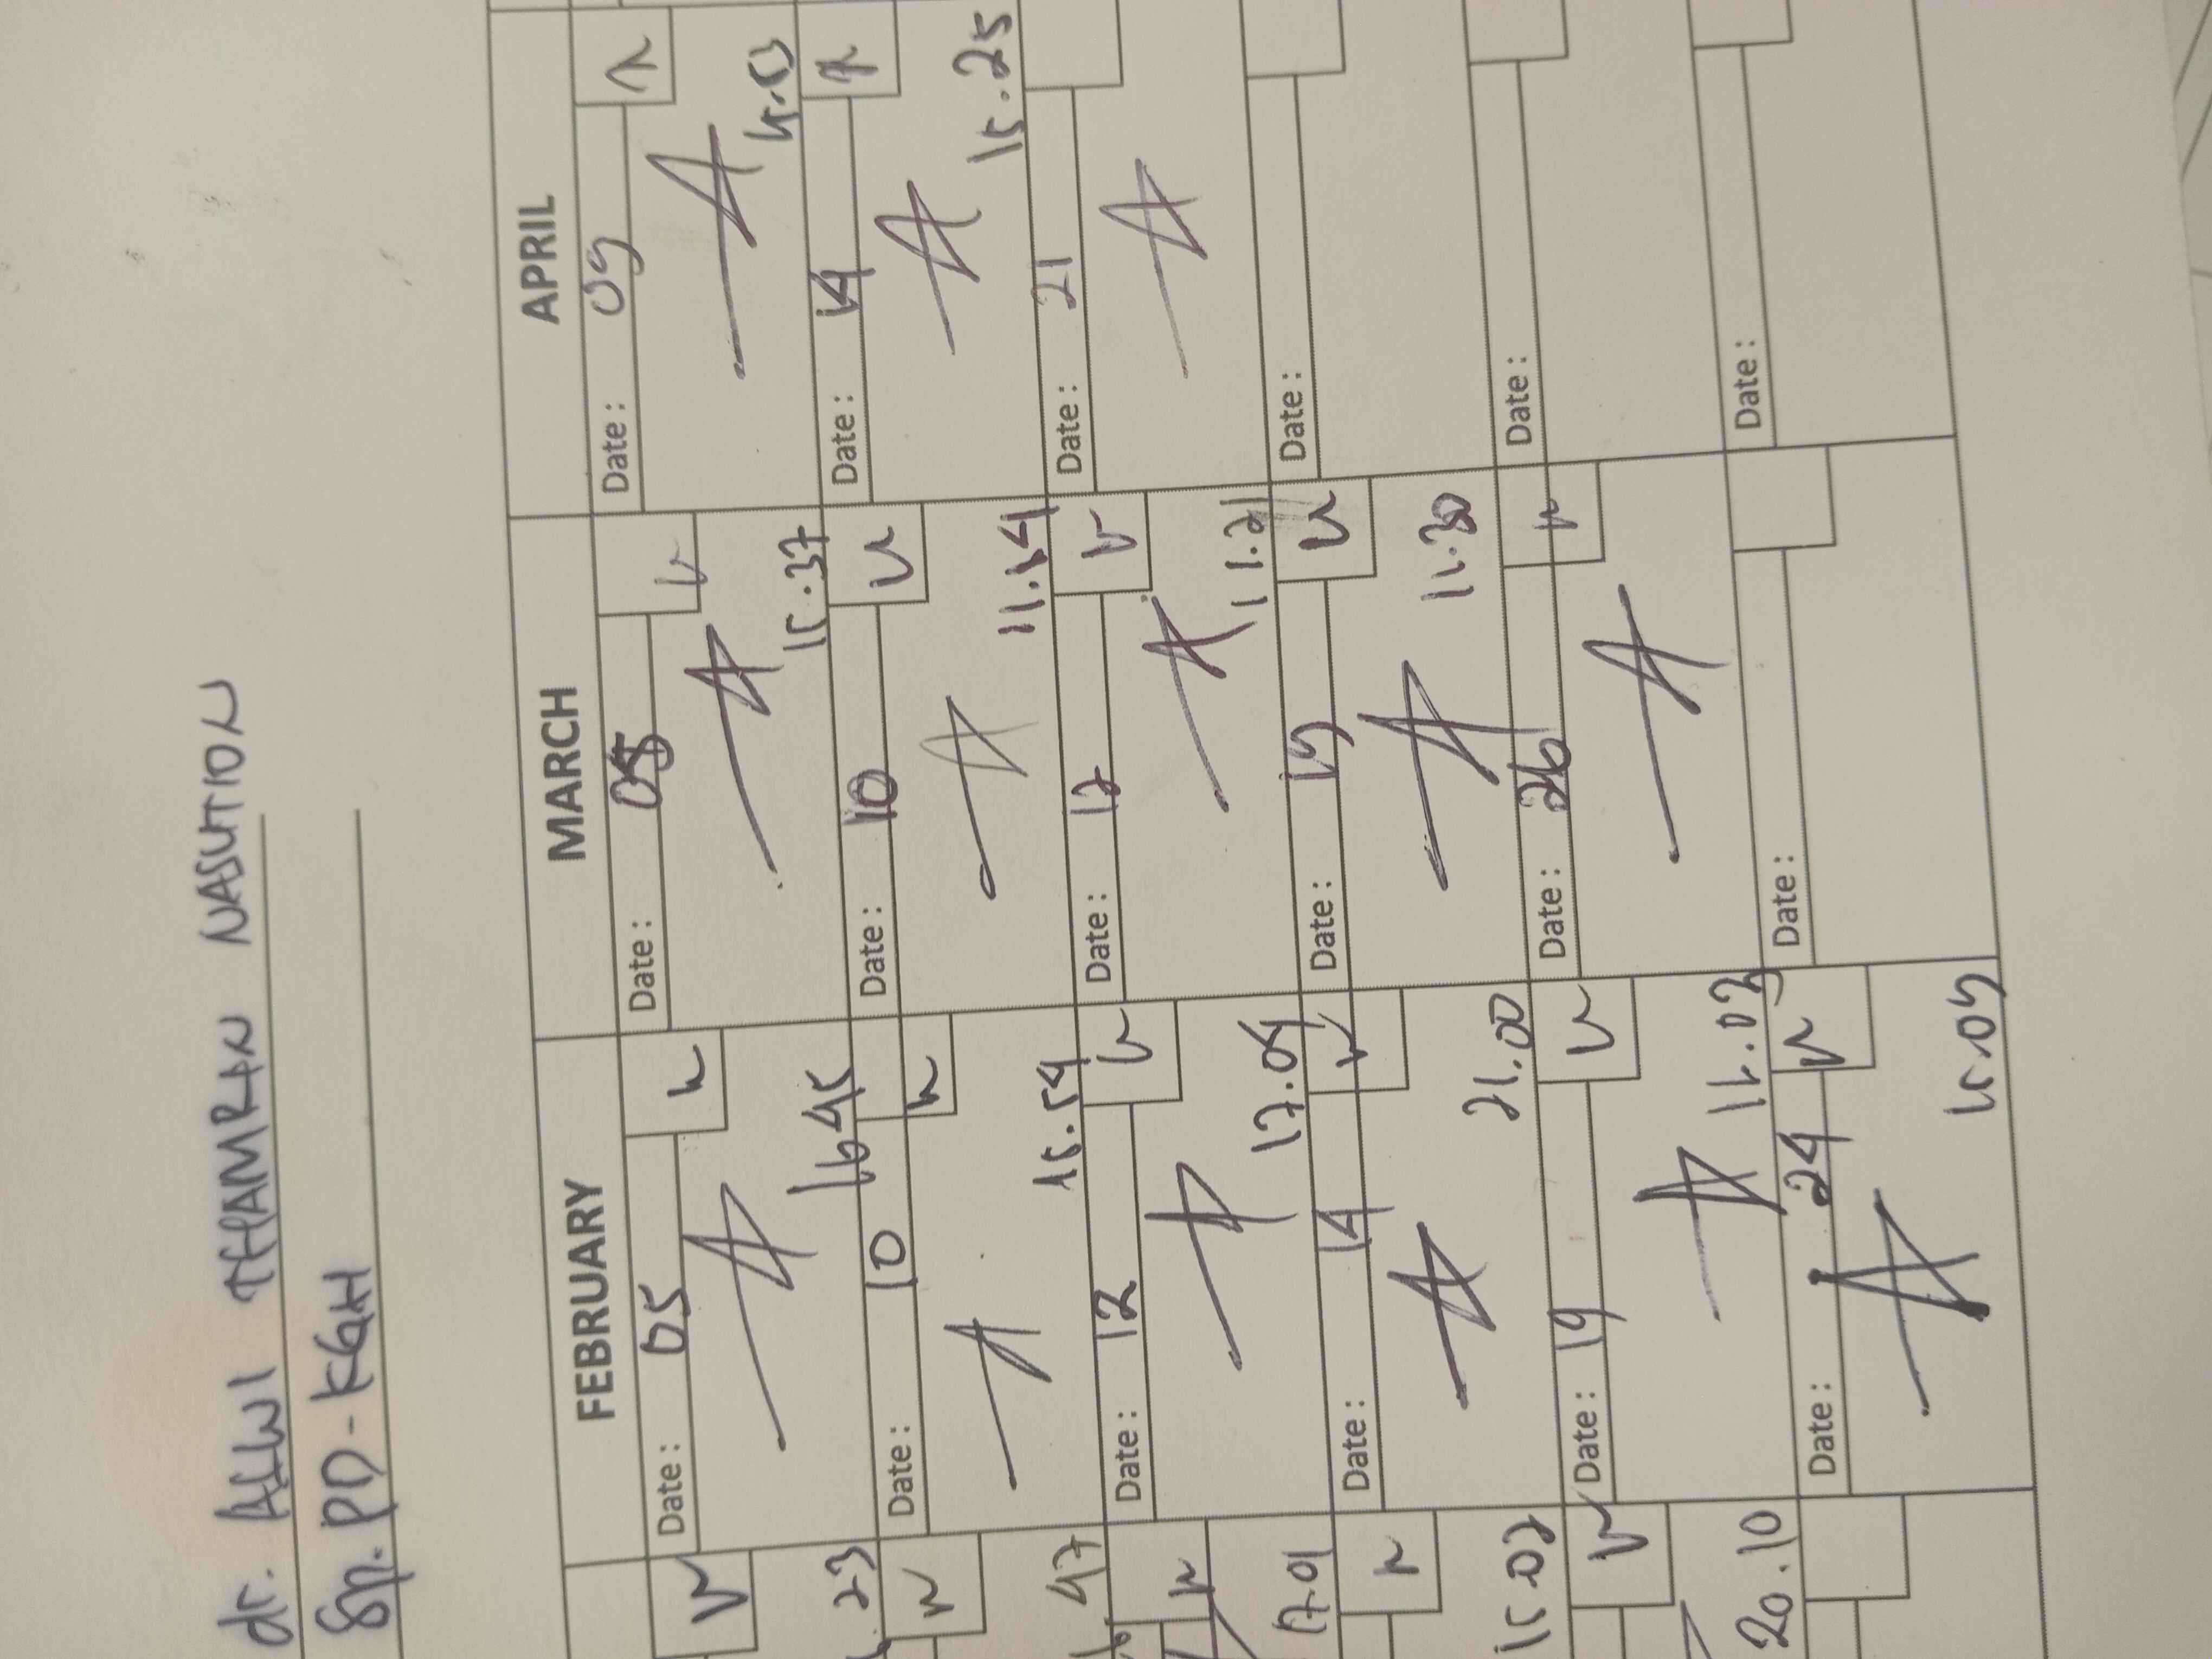 dr. ALWI THAMRIN NASUTION
Sp. PD - KGH
FEBRUARY MARCH APRIL
Date: 05 Date: 05 Date: 09
16.45 15.37
23 Date: 10 Date: 10 Date: 14
15.54 11.54 15.25
47 Date: 12 Date: 12 Date: 21
17.01 17.04 11.21
Date: 14 Date: 19 Date:
15.02 21.00 11.30
Date: 19 Date: 26 Date:
20.10 11.02
Date: 24 Date: Date:
15.09